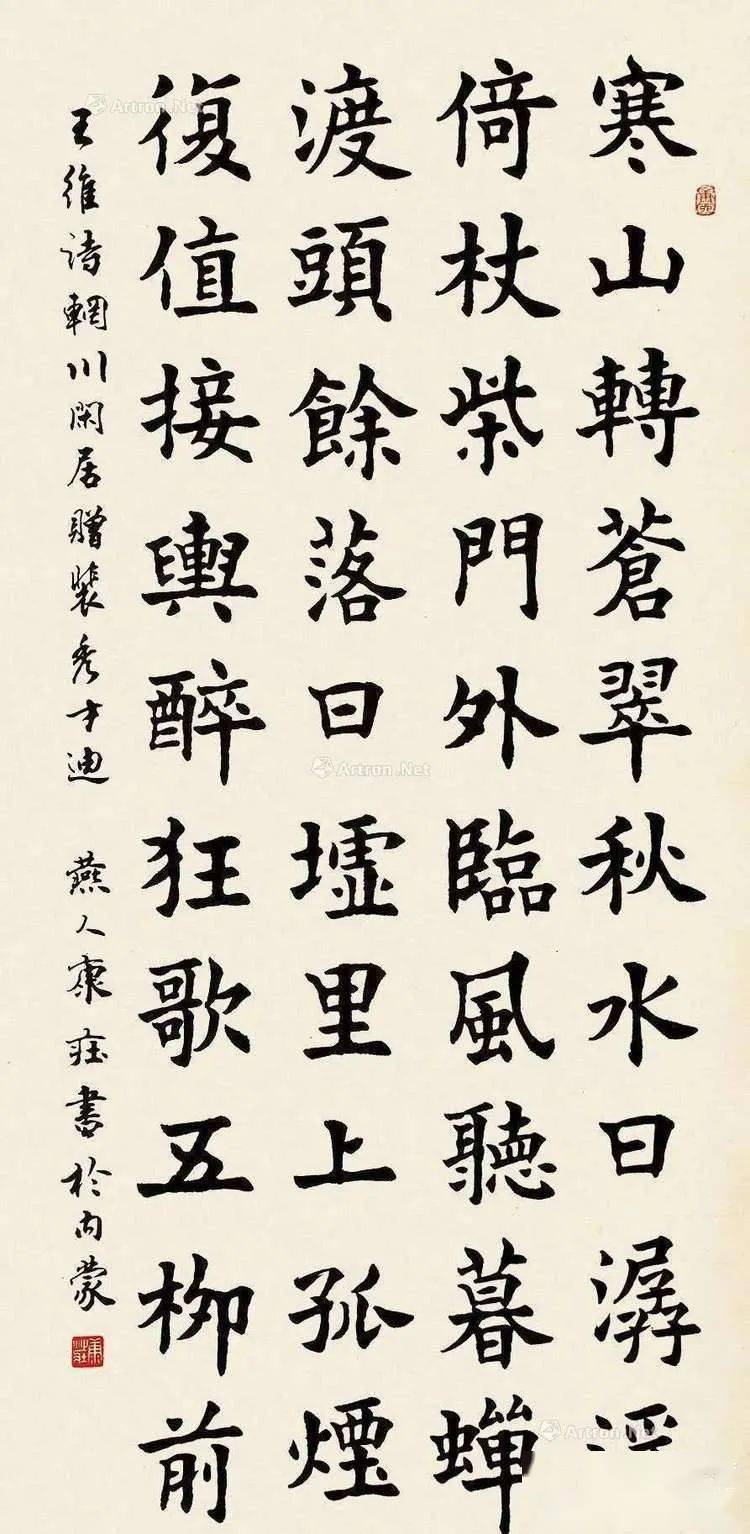 寒山轉蒼翠秋水日潺
倚杖柴門外臨風聽暮蟬
渡頭餘落日墟里上孤煙
復值接輿醉狂歌五柳前
王維詩輞川閑居贈裴秀才迪 燕人康莊書於內蒙
康莊
Artron.Net
Artron.Net
Artron.Net